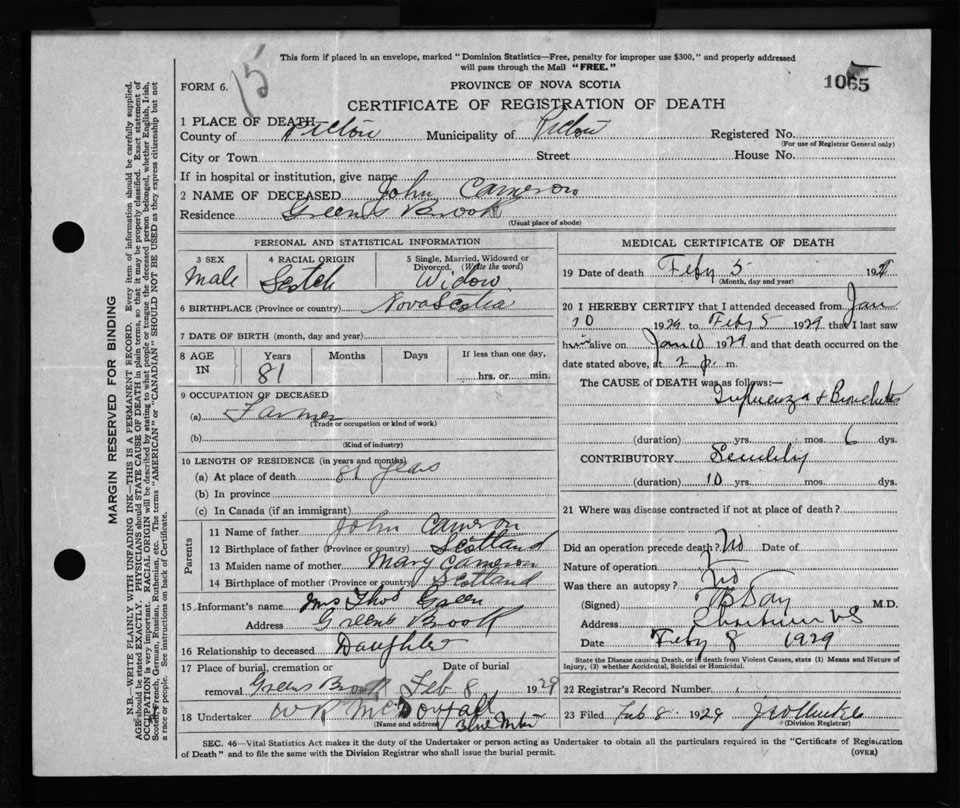 15
This form if placed in an envelope, marked "Dominion Statistics—Free, penalty for improper use $300," and properly addressed
will pass through the Mail "FREE."
FORM 6.
PROVINCE OF NOVA SCOTIA
1065
CERTIFICATE OF REGISTRATION OF DEATH
1 PLACE OF DEATH
County of Pictou Municipality of Pictou Registered No.
(For use of Registrar General only)
City or Town Street House No.
If in hospital or institution, give name
2 NAME OF DECEASED John Cameron
Residence Greens Brook
(Usual place of abode)
PERSONAL AND STATISTICAL INFORMATION
3 SEX Male
4 RACIAL ORIGIN Scotch
5 Single, Married, Widowed or Divorced. (Write the word) Widow
6 BIRTHPLACE (Province or country) Nova Scotia
7 DATE OF BIRTH (month, day and year)
8 AGE IN Years 81 Months Days If less than one day, hrs. or min.
9 OCCUPATION OF DECEASED
(a) Farmer
(Trade or occupation or kind of work)
(b)
(Kind of industry)
10 LENGTH OF RESIDENCE (in years and months)
(a) At place of death 81 years
(b) In province
(c) In Canada (if an immigrant)
Parents
11 Name of father John Cameron
12 Birthplace of father (Province or country) Scotland
13 Maiden name of mother Mary Cameron
14 Birthplace of mother (Province or country) Scotland
15 Informant's name Mrs Thos Green
Address Greens Brook
16 Relationship to deceased Daughter
17 Place of burial, cremation or removal Greens Brook Date of burial Feb 8 1929
18 Undertaker W R McDougall
(Name and address)
MEDICAL CERTIFICATE OF DEATH
19 Date of death Feby 5 192
(Month, day and year)
20 I HEREBY CERTIFY that I attended deceased from Jan
10 1929 to Feby 5 1929 that I last saw
him alive on Jan 10 1929 and that death occurred on the
date stated above, at 2 p. m.
The CAUSE OF DEATH was as follows:—
Influenza & Bronchitis
(duration) yrs. mos. 6 dys.
CONTRIBUTORY Senility
(duration) 10 yrs. mos. dys.
21 Where was disease contracted if not at place of death?
Did an operation precede death? No Date of
Nature of operation
Was there an autopsy? No
(Signed) M.D.
Address NS
Date Feby 8 1929
State the Disease causing Death, or is death from Violent Causes, state (1) Means and Nature of
Injury, (2) whether Accidental, Suicidal or Homicidal.
22 Registrar's Record Number
23 Filed Feb 8 1929
(Division Registrar)
SEC. 46—Vital Statistics Act makes it the duty of the Undertaker or person acting as Undertaker to obtain all the particulars required in the "Certificate of Registration
of Death" and to file the same with the Division Registrar who shall issue the burial permit.
(OVER)
MARGIN RESERVED FOR BINDING
N.B.—WRITE PLAINLY WITH UNFADING INK—THIS IS A PERMANENT RECORD. Every item of information should be carefully supplied.
AGE should be stated EXACTLY. PHYSICIANS should STATE CAUSE OF DEATH in plain terms, so that it may be properly classified. Exact statement of
OCCUPATION is very important. RACIAL ORIGIN will be described by stating to what people or tongue the deceased person belonged, whether English, Irish,
Scotch, French, German, Russian, Ruthenian, etc. The terms "AMERICAN" or "CANADIAN" SHOULD NOT BE USED as they express citizenship but not
a race or people. See instructions on back of Certificate.